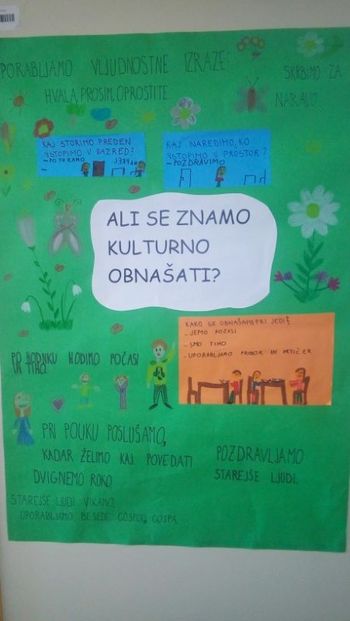 PORABLJAMO VLJUDNOSTNE IZRAZE:
HVALA, PROSIM, OPROSTITE
SKRBIMO ZA
NARAVO
KAJ STORIMO PREDEN
VSTOPIMO V RAZRED?
- POTRKAMO
KAJ NAREDIMO, KO
VSTOPIMO V PROSTOR?
- POZDRAVIMO
ALI SE ZNAMO
KULTURNO
OBNAŠATI?
KAKO SE OBNAŠAMO PRI JEDI?
- JEMO POČASI
- SMO TIHO
- UPORABLJAMO PRIBOR IN PRTIČEK
PO HODNIKU HODIMO POČASI
IN TIHO.
PRI POUKU POSLUŠAMO,
KADAR ŽELIMO KAJ POVEDATI
DVIGNEMO ROKO
POZDRAVLJAMO
STAREJŠE LJUDI.
STAREJŠE LJUDI VIKAMO,
UPORABLJAMO BESEDE GOSPOD, GOSPA.